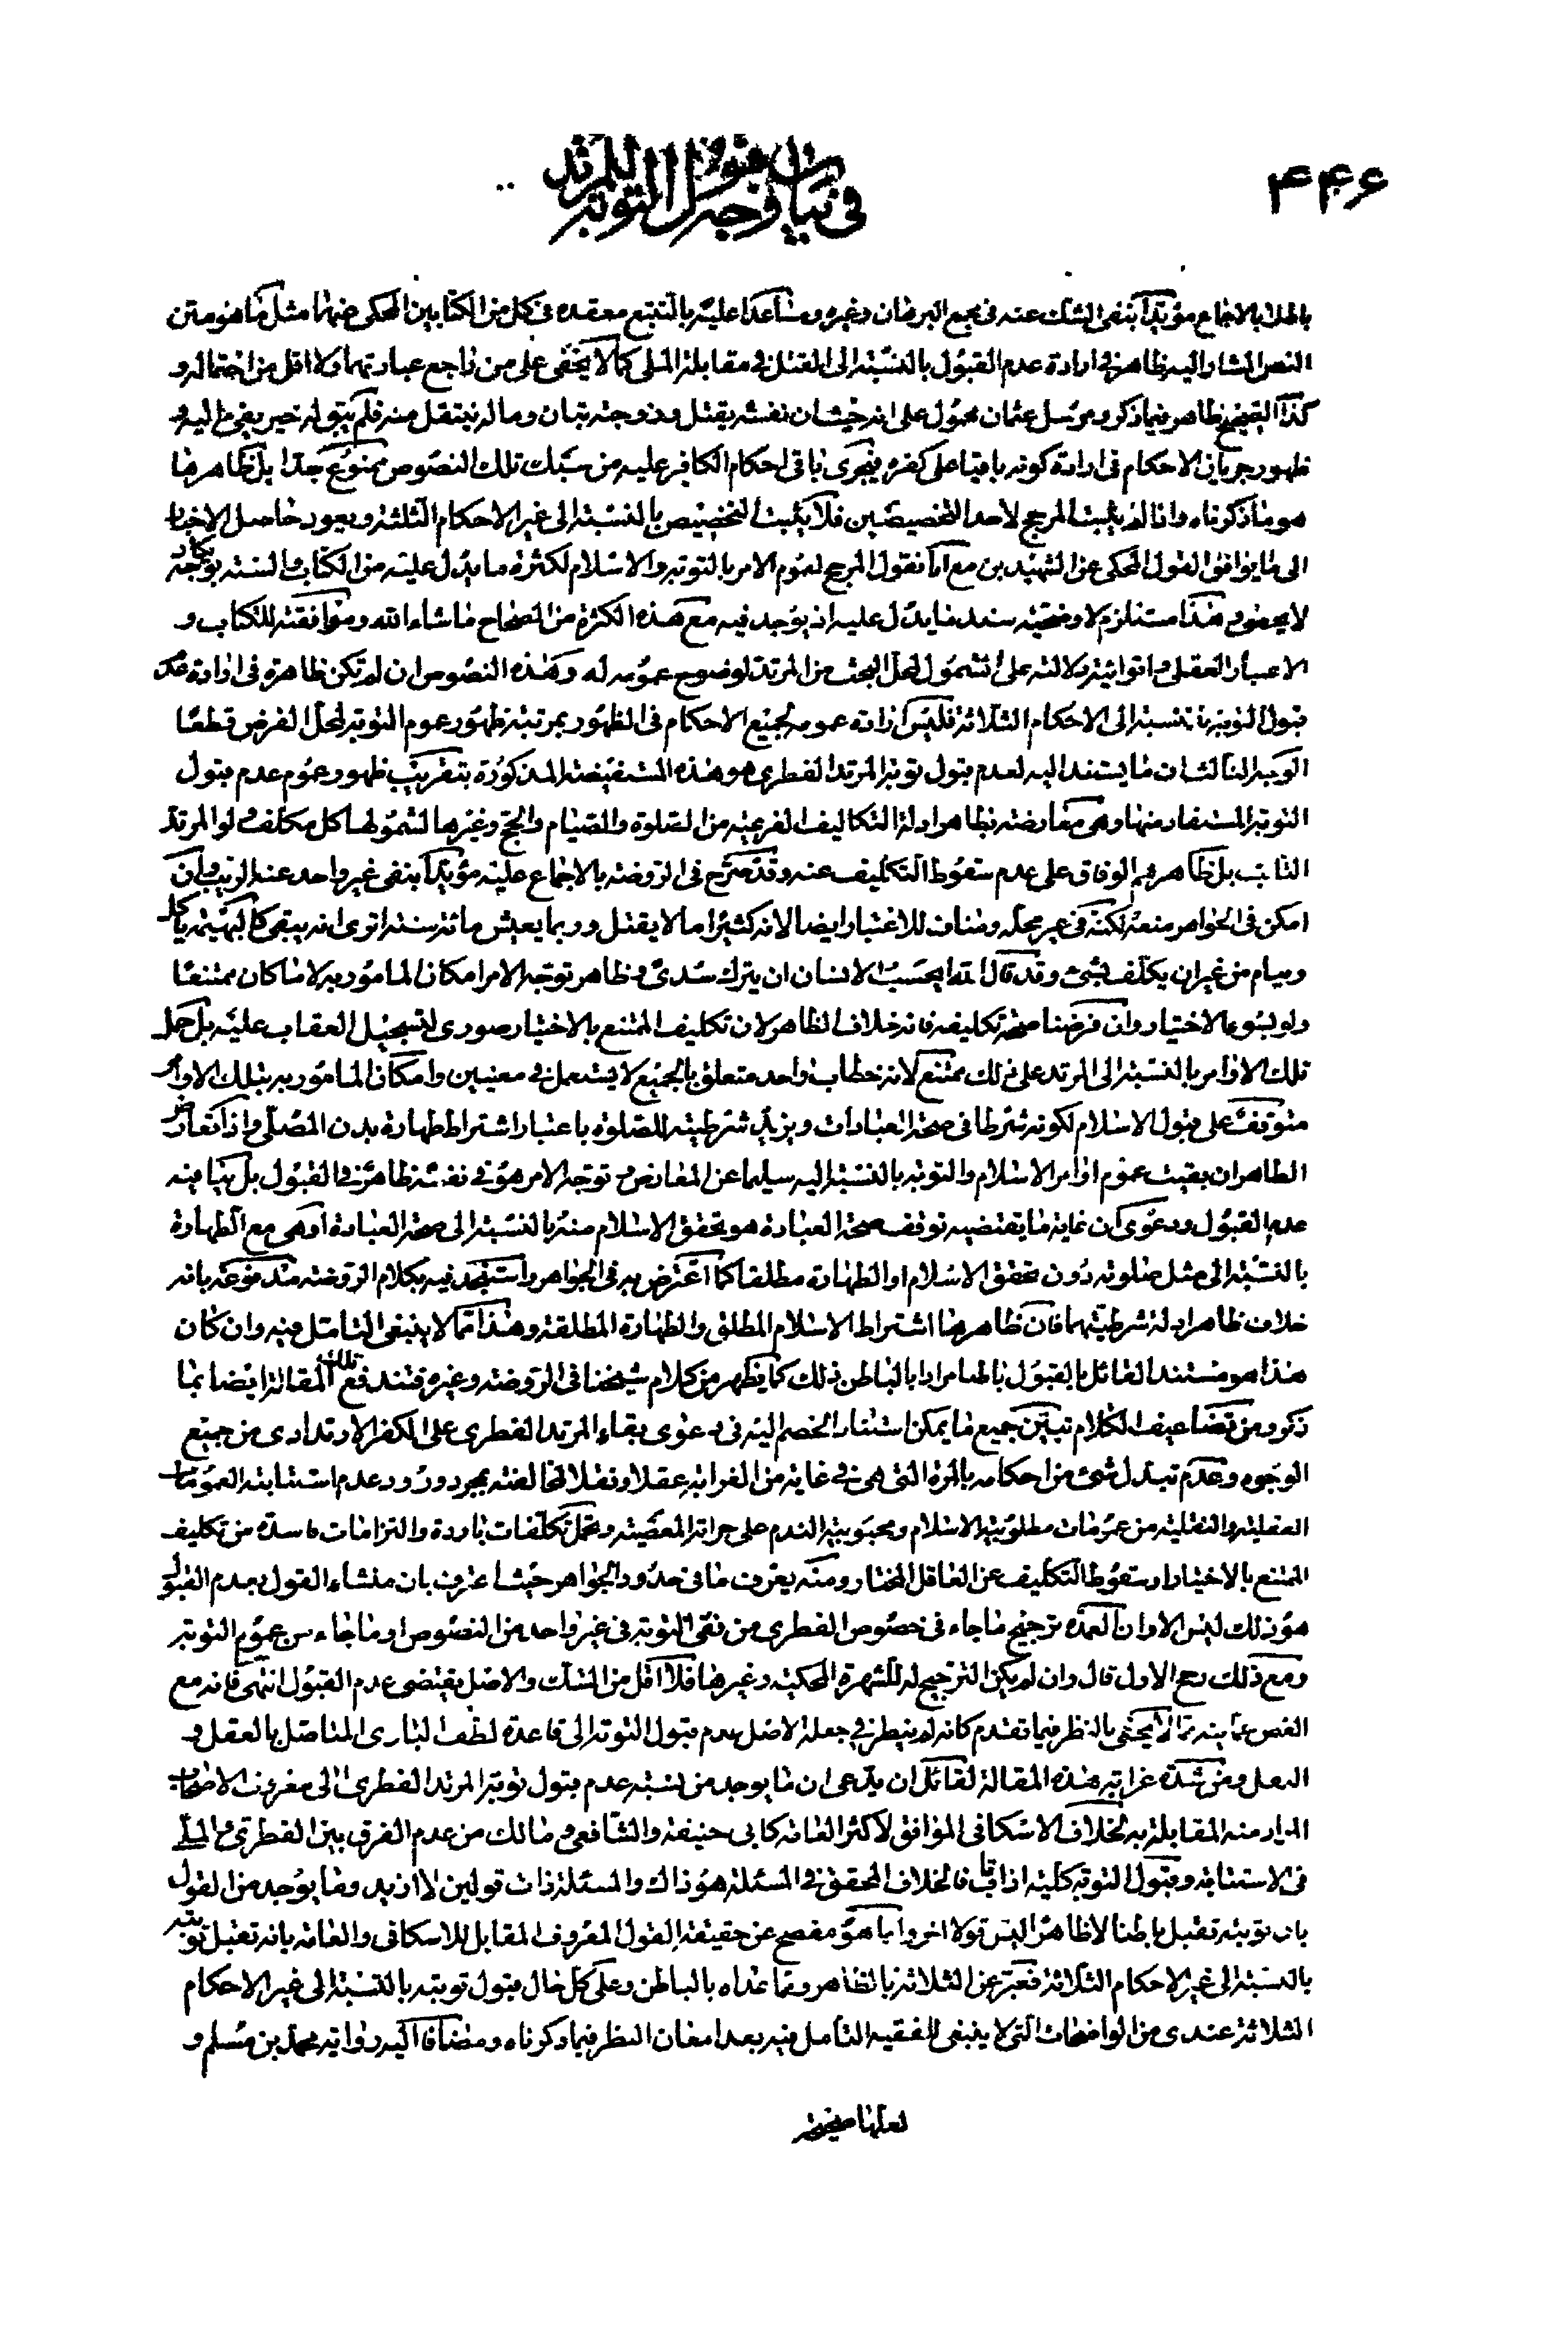 ۴۴۶
في بيان وجه قبول التوبة للمرتد
باطلا بالاجماع مؤيدا بنفى الشك عنه في مجمع البرهان وغيره ومساعدا عليه بالتتبع معقده في كل من الكتابين المحكى عنهما مثل ما هو متن
النص المشار اليه ظاهر في ارادة عدم القبول بالنسبة الى القتل في مقابلة الملى كما لا يخفى على من راجع عبارتهما ولا اقل من احتماله و
كذا الصحيح ظاهر فيما ذكر ومرسل عثمان محمول على انه حيث ان نفسه يقتل وزوجته تبان وماله ينتقل منه فلم يبق له حين يفزع اليه و
ظهور جريان الاحكام في ارادة كونه باقيا على كفره فيجرى باقى احكام الكافر عليه من سبك تلك النصوص ممنوع جدا بل ظاهرها
هو ما ذكرناه واذا لم يثبت المرجح لاحد التخصيصين فلا يثبت التخصيص بالنسبة الى غير الاحكام الثلثة ويعود حاصل الاخبار
الى ما يوافق القول المحكى عن الشهيدين مع انا نقول المرجح لعموم الامر بالتوبة والاسلام لكثرة ما يدل عليه من الكتاب والسنة بوجه يكاد
لا يحصى و هذا مستلزم لاوضحية سند ما يدل عليه اذ يوجد فيه مع هذه الكثرة من الصحاح ما شاء الله وموافقته للكتاب و
الاعتبار العقلى واقوائية دلالته على الشمول لمحل البحث من المرتد لوضوح عمومه له وهذه النصوص ان لم تكن ظاهرة في ارادة عدم
قبول التوبة بالنسبة الى الاحكام الثلاثة فليس ارادة عمومه لجميع الاحكام في الظهور بمرتبة ظهور عموم التوبة لمحل الفرض قطعا
الوجه الثالث ان ما يستند اليه لعدم قبول توبة المرتد الفطرى هو هذه المستفيضة المذكورة بتقريب ظهور عموم عدم قبول
التوبة المستفاد منها وهى معارضة بظاهر ادلة التكاليف الفرعية من الصلوة والصيام والحج وغيرها لشمولها كل مكلف ولو المرتد
التائب بل ظاهرهم الوفاق على عدم سقوط التكليف عنه وقد صرح في الروضة بالاجماع عليه مؤيدا بنفى غير واحد عنه الريب وان
امكن في الجواهر منعه لكنه في غير محله ومناف للاعتبار ايضا لانه كثيرا ما لا يقتل وربما يعيش مائة سنة اترى انه يبقى كالبهيمة ياكل
وينام من غير ان يكلف بشئ وقد قال الله ايحسب الانسان ان يترك سدى وظاهر توجه الامر امكان المامور به لا ما كان ممتنعا
ولو بسوء الاختيار وان فرضنا صحة تكليفه فانه خلاف الظاهر لان تكليف الممتنع بالاختيار صورى لتسجيل العقاب عليه بل حمل
تلك الاوامر بالنسبة الى المرتد على ذلك ممتنع لانه خطاب واحد متعلق بالجميع لا يستعمل في معنيين وامكان المامور به بتلك الاوامر
متوقف على قبول الاسلام لكونه شرطا في صحة العبادات ويزيد شرطيته للصلوة باعتبار اشتراط طهارة بدن المصلى واذا تعارض
الظاهران بقيت عموم اوامر الاسلام والتوبة بالنسبة اليه سليما عن المعارض و توجه الامر هو في نفسه ظاهر في القبول بل ينافيه
عدم القبول ودعوى ان غاية ما يقتضيه توقف صحة العبادة هو تحقق الاسلام منه بالنسبة الى صحة العبادة او هى مع الطهارة
بالنسبة الى مثل صلوته دون تحقق الاسلام او الطهارة مطلقا كما اعترض به في الجواهر واستنجد فيه بكلام الروضة مدفوعة بانه
خلاف ظاهر ادلة شرطيتهما فان ظاهرها اشتراط الاسلام المطلق والطهارة المطلقة وهذا مما لا ينبغى التامل فيه وان كان
هذا هو مستند القائل بالقبول باطنا مرادا بالباطن ذلك كما يظهر من كلام شيخنا في الروضة وغيره فتندفع تلك المقالة ايضا بما
ذكر ومن تضاعيف الكلام تبين جميع ما يمكن استناد الخصم اليه في دعوى بقاء المرتد الفطرى على الكفر الارتدادى من جميع
الوجوه وعدم تبدل شئ من احكامه بالمرة التى هى في غاية من الغرابة عقلا ونقلا لمخالفته بمجرد ورود عدم استتابته العمومات
العقلية والنقلية من عمومات مطلوبية الاسلام ومحبوبية الندم على جرائة المعصية وتحمل تكلفات باردة والتزامات فاسدة من تكليف
الممتنع بالاختيار او سقوط التكليف عن العاقل المختار ومنه يعرف ما في حدود الجواهر حيث اعترف بان منشاء القول بعدم القبول
هو ذلك ليس الا وان العمدة ترجيح ما جاء في خصوص الفطرى من نفى التوبة في غير واحد من النصوص او ما جاء من عموم التوبة
ومع ذلك رجح الاول قال وان لم يكن الترجيح له للشهرة المحكية وغيرها فلا اقل من الشك والاصل يقتضى عدم القبول انتهى فانه مع
الغض عما فيه مما لا يخفى بالنظر فيما تقدم كانه لم ينظر في جعله الاصل عدم قبول التوبة الى قاعدة لطف البارى المتاصل بالعقل و
النقل ومن شدة غرابة هذه المقالة لقائل ان يدعى ان ما يوجد من نسبة عدم قبول توبة المرتد الفطرى الى معروف الاصحاب
المراد منه المقابلة به لخلاف الاسكافى الموافق لاكثر العامة كابى حنيفة والشافعى و مالك من عدم الفرق بين الفطرى و الملى
في الاستتابة وقبول التوبة كلية اذا تاب فالخلاف المحقق في المسئلة هو ذاك والمسئلة ذات قولين لا ازيد وما يوجد من القول
بان توبته تقبل باطنا لا ظاهرا ليس قولا اخر وانما هو مفصح عن حقيقة القول المعروف المقابل للاسكافى والعامة بانه تقبل توبته
بالنسبة الى غير الاحكام الثلاثة فعبر عن الثلاثة بالظاهر وما عداه بالباطن وعلى كل حال قبول توبته بالنسبة الى غير الاحكام
الثلاثة عندى من الواضحات التى لا ينبغى للفقيه التامل فيه بعد امعان النظر فيما ذكرناه ومضافا اليه رواية محمد بن مسلم و
لعلها صحيحة